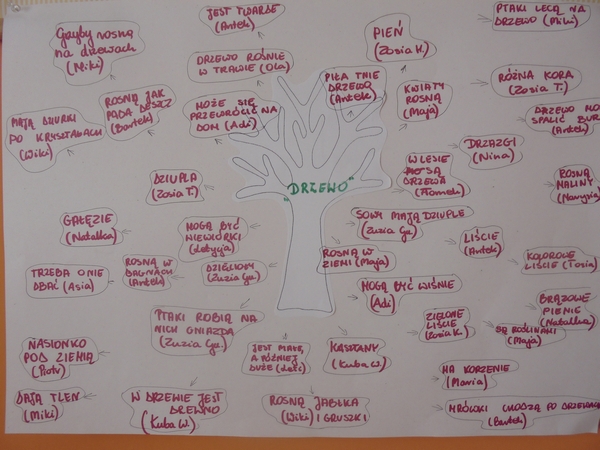 JEST TWARDE
(Antek)
PTAKI LECĄ NA
DRZEWO (Miki)
Grzyby rosną
na drzewach
(Miki)
PIEŃ
(Zosia K.)
DRZEWO ROŚNIE
W TRAWIE (Ola)
PIŁA TNIE
DRZEWO
(Antek)
RÓŻNA KORA
(Zosia T.)
ROSNĄ JAK
PADA DESZCZ
(Bartek)
MOŻE SIĘ
PRZEWRÓCIĆ NA
DOM (Adi)
KWIATY
ROSNĄ
(Maja)
DRZEWO MO
SPALIĆ BUR
(Antek)
MAJĄ DZIURKI
PO
(Wiki)
DRZAZGI
(Nina)
DZIUPLA
(Zosia T.)
"DRZEWO"
W LESIE
SĄ
DRZEWA
(Tomek)
ROSNĄ
MALINY
GAŁĘZIE
(Natalka)
MOGĄ BYĆ
WIEWIÓRKI
(Letycja)
SOWY MAJĄ DZIUPLE
(Zuzia Gu.)
LIŚCIE
(Antek)
KOLOROWE
LIŚCIE (Tosia)
TRZEBA O NIE
DBAĆ (Asia)
ROSNĄ W
BAGNACH
(Antek)
DZIĘCIOŁY
(Zuzia Gu.)
ROSNĄ W
ZIEMI (Maja)
MOGĄ BYĆ WIŚNIE
(Adi)
PTAKI ROBIĄ NA
NICH GNIAZDA
(Zuzia Gu.)
ZIELONE
LIŚCIE
(Zosia K.)
BRĄZOWE
PIENIE
(Natalka)
SĄ ROŚLINAMI
(Maja)
NASIONKO
POD ZIEMIĄ
(Piotr)
JEST MAŁE,
A PÓŹNIEJ
DUŻE
KASZTANY
(Kuba W.)
MA KORZENIE
(Marta)
DAJĄ TLEN
(Miki)
W DRZEWIE JEST
DREWNO
(Kuba W.)
ROSNĄ JABŁKA
(Wiki) I GRUSZKI
MRÓWKI CHODZĄ PO DRZEWACH
(Bartek)